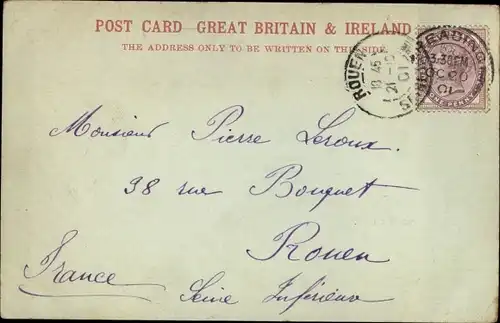 POST CARD GREAT BRITAIN & IRELAND
THE ADDRESS ONLY TO BE WRITTEN ON THIS SIDE.
ROUEN
18 45
21
01
READING
3.30PM
OC 20
01
ONE PENNY
Monsieur Pierre Leroux.
38 rue Bouquet
Rouen
France
Seine Inférieure